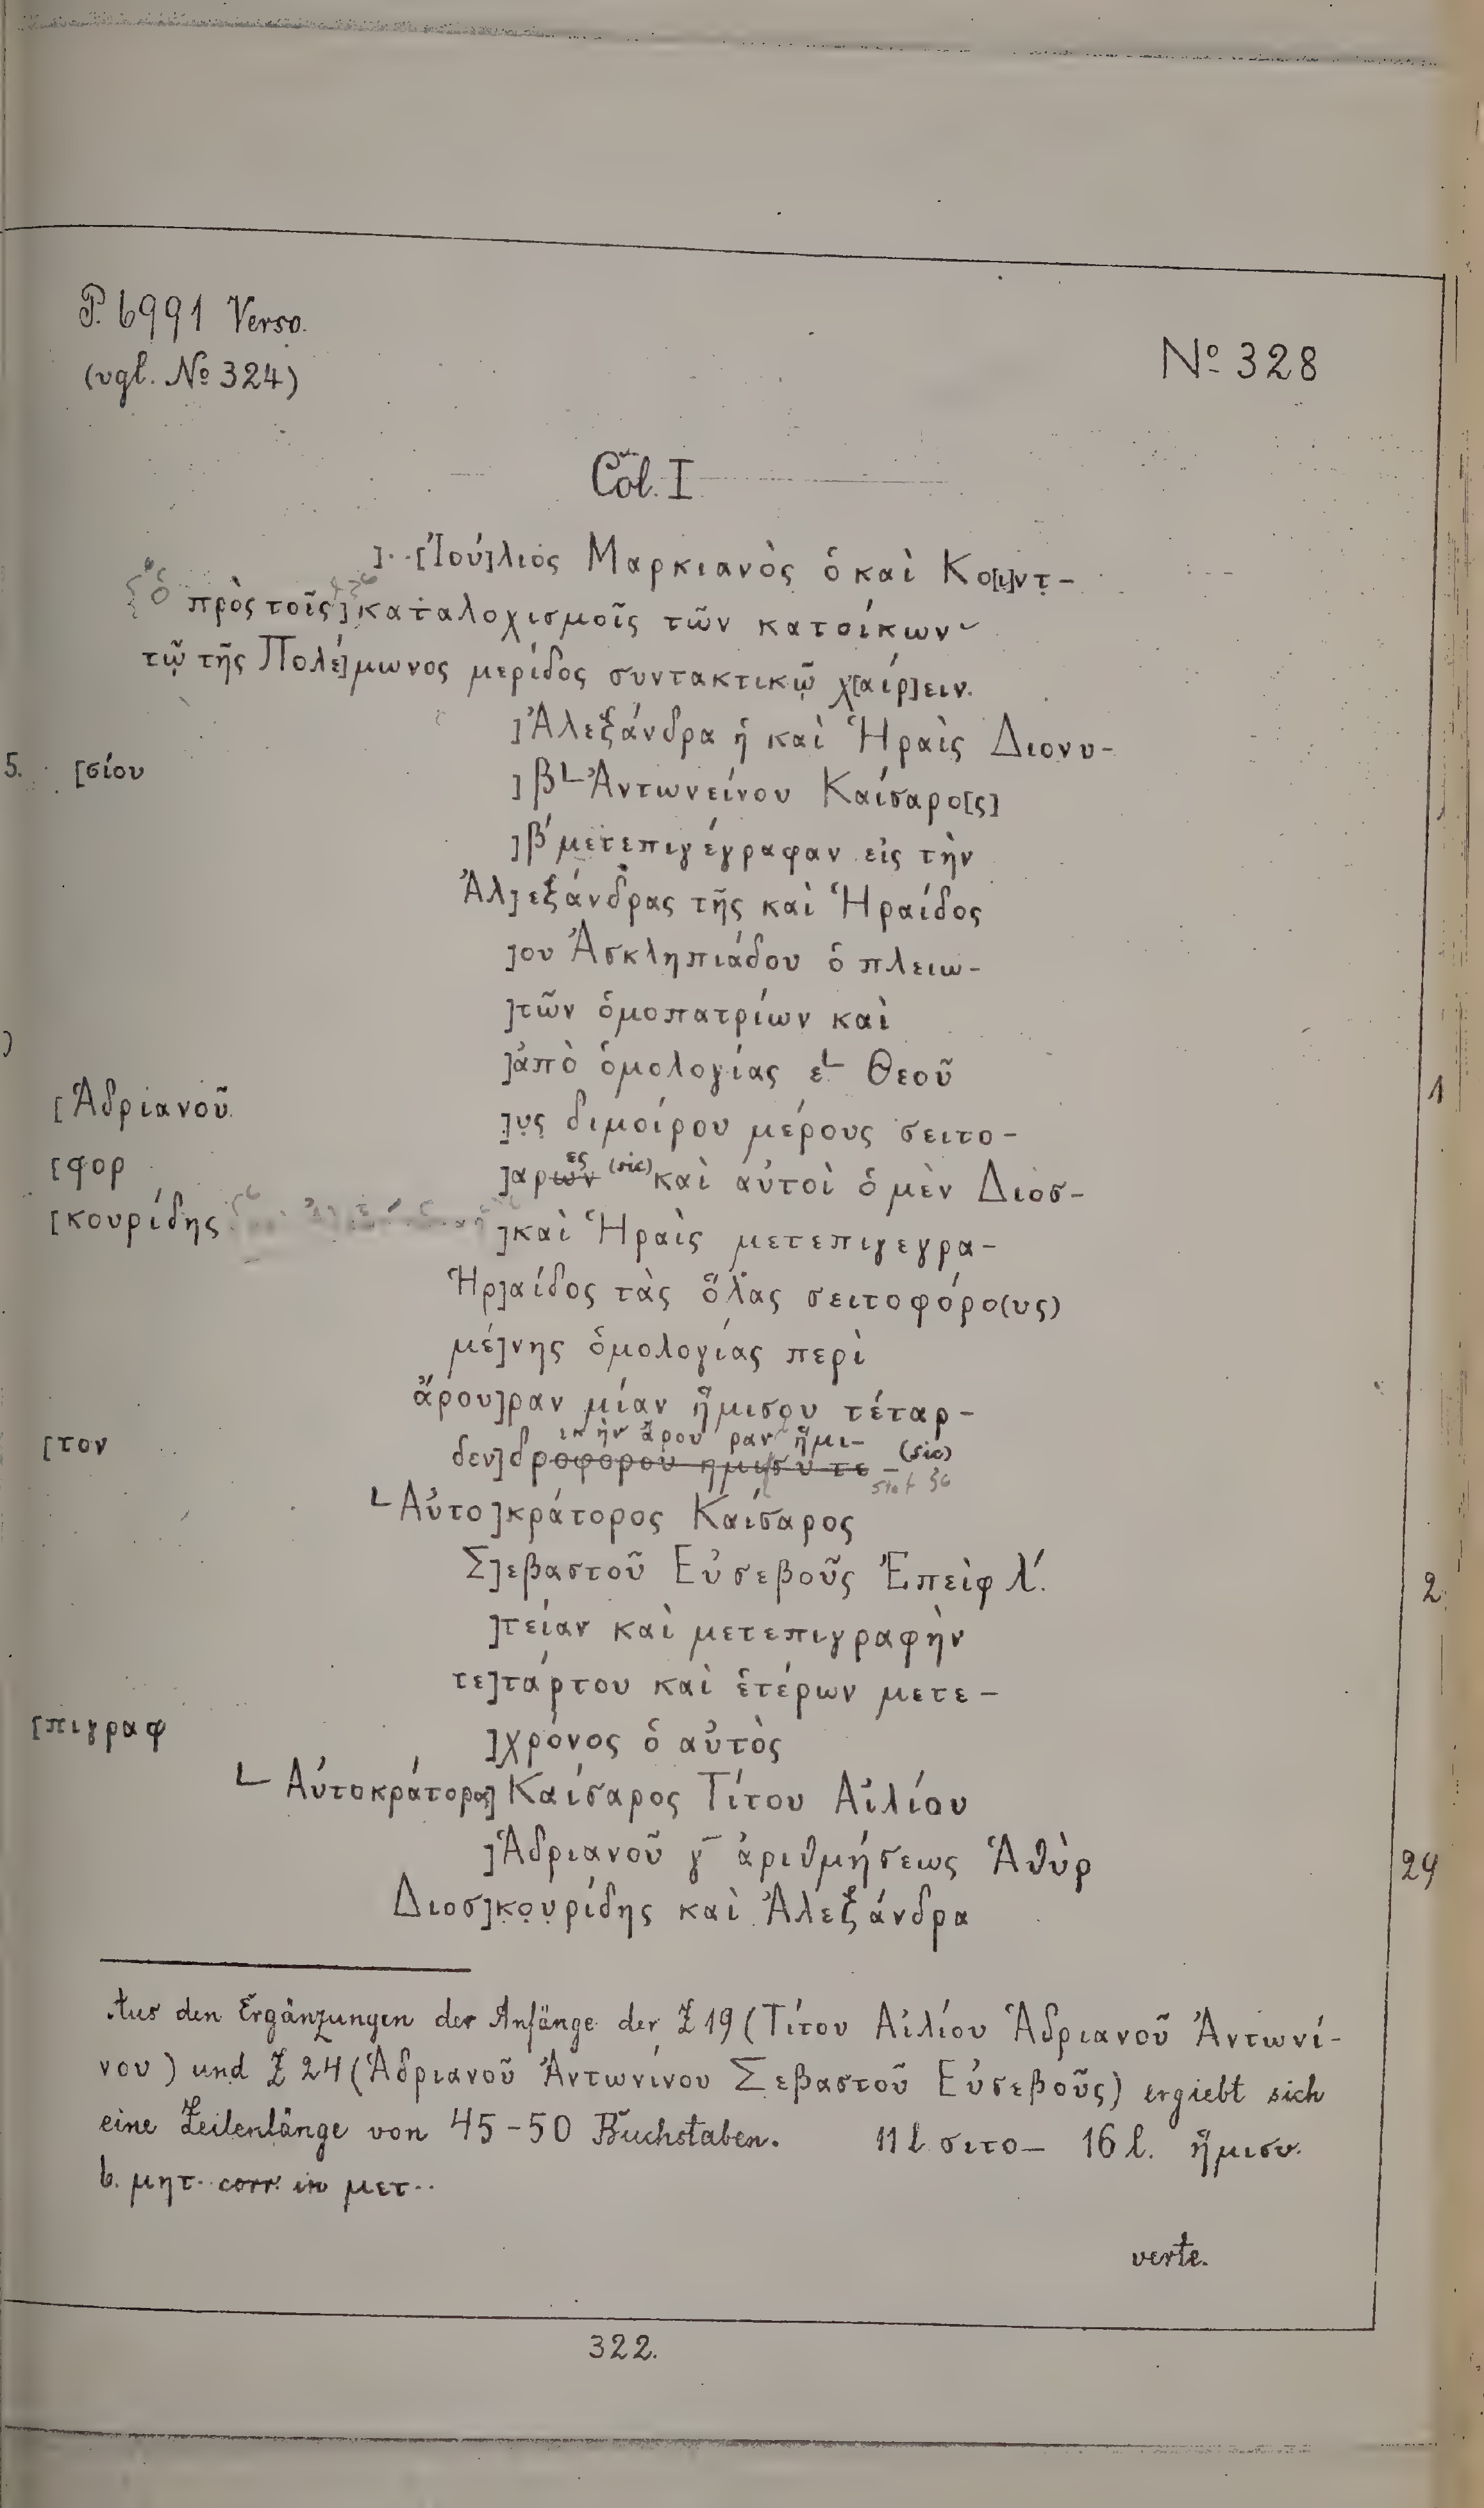 P. 6991 Verso.
(vgl. No 324)
No 328
Col. I
]··[Ἰού]λιος Μαρκιανὸς ὁ καὶ Κο[ι]ντ-
πρὸς τοῖς] καταλοχισμοῖς τῶν κατοίκων
τῷ τῆς Πολέ]μωνος μερίδος συντακτικῷ χ[αίρ]ειν.
]Ἀλεξάνδρα ἡ καὶ Ἡραὶς Διονυ-
5. [σίου ]β L Ἀντωνείνου Καίσαρο[ς]
]β´ μετεπιγέγραφαν εἰς τὴν
Ἀλ]εξάνδρας τῆς καὶ Ἡραίδος
]ου Ἀσκληπιάδου ὁ πλειω-
]τῶν ὁμοπατρίων καὶ
]ἀπὸ ὁμολογίας ε L Θεοῦ
1
[Ἁδριανοῦ ]υς διμοίρου μέρους σειτο-
[φορ ]αρων ες (sic) καὶ αὐτοὶ ὁ μὲν Διοσ-
[κουρίδης ]καὶ Ἡραὶς μετεπιγεγρα-
Ἡρ]αίδος τὰς ὅλας σειτοφόρο(υς)
μέ]νης ὁμολογίας περὶ
ἄρου]ραν μίαν ἥμισου τέταρ-
ἄρου ραν ἥμι- (sic)
[τον δεν]δροφόρου ημισυ τε
L Αὐτο]κράτορος Καίσαρος
Σ]εβαστοῦ Εὐσεβοῦς Ἐπεὶφ λ´.
2
]τείαν καὶ μετεπιγραφὴν
τε]τάρτου καὶ ἑτέρων μετε-
[πιγραφ ]χρόνος ὁ αὐτὸς
L Αὐτοκράτορος] Καίσαρος Τίτου Αἰλίου
]Ἁδριανοῦ γ‾ ἀριθμήσεως Ἁθὺρ
24
Διοσ]κουρίδης καὶ Ἀλεξάνδρα
Aus den Ergänzungen der Anfänge der Z 19 (Τίτου Αἰλίου Ἁδριανοῦ Ἀντωνί-
νου) und Z 24 (Ἁδριανοῦ Ἀντωνίνου Σεβαστοῦ Εὐσεβοῦς) ergiebt sich
eine Zeilenlänge von 45-50 Buchstaben. 11 l σιτο- 16 l. ἥμισυ.
6. μητ·· corr. in μετ··
verte.
322.